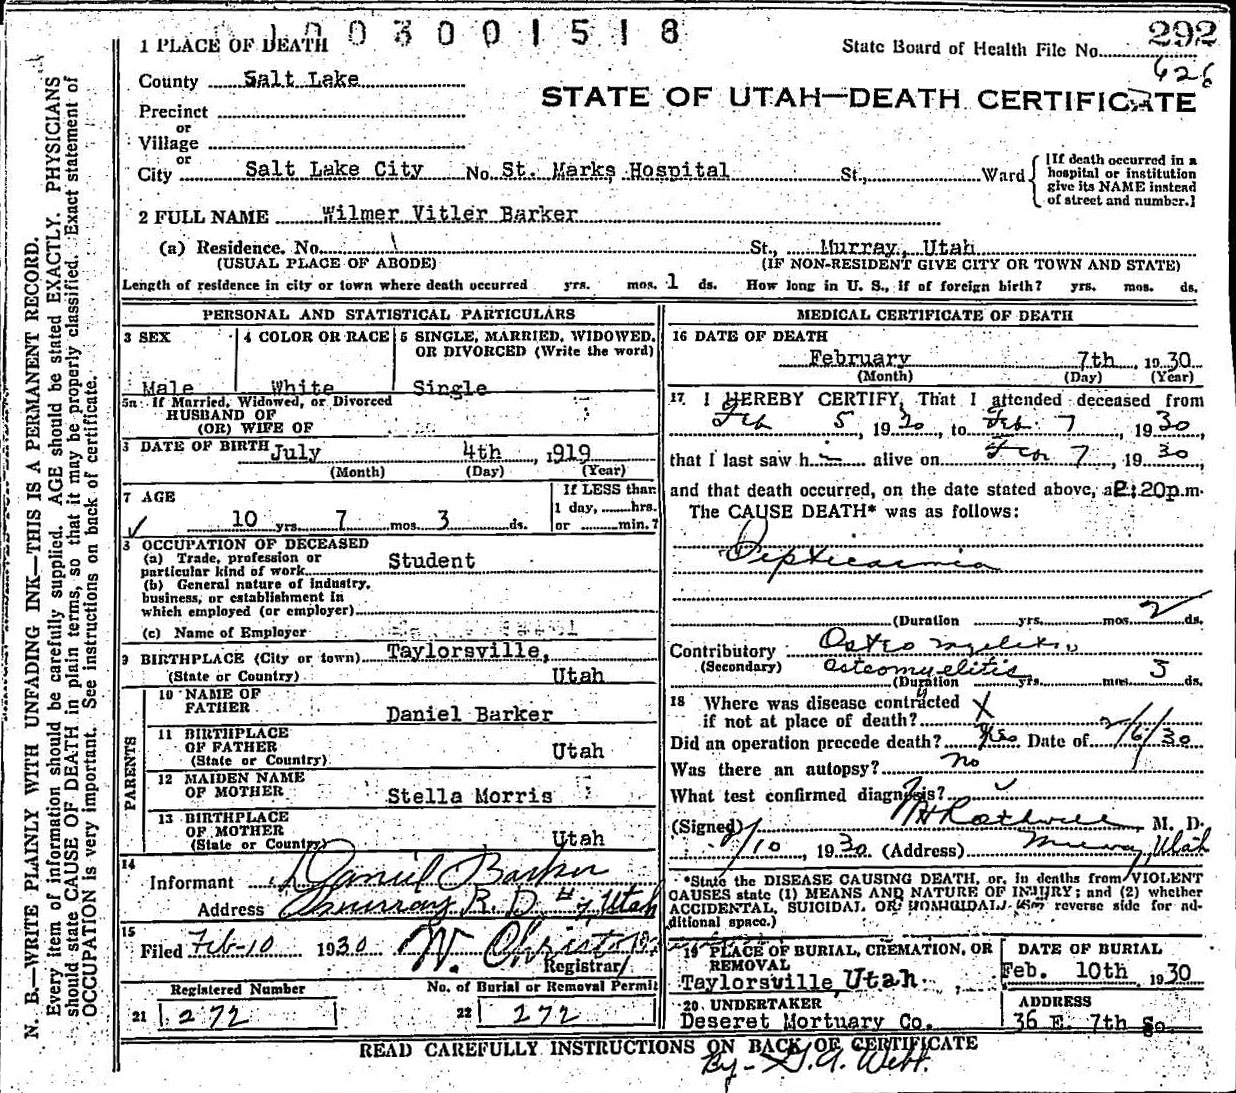 1003001518
1 PLACE OF DEATH
State Board of Health File No. 292
626
County Salt Lake
STATE OF UTAH—DEATH CERTIFICATE
Precinct
or
Village
or
City Salt Lake City No. St. Marks Hospital St., Ward
[If death occurred in a hospital or institution give its NAME instead of street and number.]
2 FULL NAME Wilmer Vitler Barker
(a) Residence. No. St., Murray, Utah
(USUAL PLACE OF ABODE) (IF NON-RESIDENT GIVE CITY OR TOWN AND STATE)
Length of residence in city or town where death occurred yrs. mos. 1 ds. How long in U. S., if of foreign birth? yrs. mos. ds.
PERSONAL AND STATISTICAL PARTICULARS
3 SEX
Male
4 COLOR OR RACE
White
5 SINGLE, MARRIED, WIDOWED,
OR DIVORCED (Write the word)
Single
5a If Married, Widowed, or Divorced
HUSBAND OF
(OR) WIFE OF
DATE OF BIRTH July 4th, 1919
(Month) (Day) (Year)
7 AGE
10 yrs. 7 mos. 3 ds.
If LESS than
1 day, hrs.
or min.?
OCCUPATION OF DECEASED
(a) Trade, profession or
particular kind of work Student
(b) General nature of industry,
business, or establishment in
which employed (or employer)
(c) Name of Employer
9 BIRTHPLACE (City or town) Taylorsville,
(State or Country) Utah
PARENTS
10 NAME OF
FATHER Daniel Barker
11 BIRTHPLACE
OF FATHER
(State or Country) Utah
12 MAIDEN NAME
OF MOTHER Stella Morris
13 BIRTHPLACE
OF MOTHER
(State or Country) Utah
14
Informant Daniel Barker
Address Murray R. D. # 7, Utah
15
Filed Feb-10 1930 W. Christ
Registrar
Registered Number
21 272
No. of Burial or Removal Permit
22 272
MEDICAL CERTIFICATE OF DEATH
16 DATE OF DEATH
February 7th, 1930
(Month) (Day) (Year)
17 I HEREBY CERTIFY, That I attended deceased from
Feb 5, 1930, to Feb. 7, 1930,
that I last saw h alive on Feb 7, 1930
and that death occurred, on the date stated above, a 2:20p.m.
The CAUSE DEATH* was as follows:
Septicaemia
(Duration yrs. mos. 2 ds.
Contributory Osteomyelitis
(Secondary) Osteomyelitis
(Duration yrs. mos. 3 ds.
18 Where was disease contracted
if not at place of death? X
Did an operation precede death? Yes Date of 2/6/30
Was there an autopsy? no
What test confirmed diagnosis?
(Signed) H Rothwell M. D.
2/10, 1930 (Address) Murray, Utah
*State the DISEASE CAUSING DEATH, or, in deaths from VIOLENT
CAUSES state (1) MEANS AND NATURE OF INJURY; and (2) whether
ACCIDENTAL, SUICIDAL OR HOMICIDAL. (See reverse side for ad-
ditional space.)
19 PLACE OF BURIAL, CREMATION, OR
REMOVAL
Taylorsville, Utah.
DATE OF BURIAL
Feb. 10th 1930
20. UNDERTAKER
Deseret Mortuary Co.
ADDRESS
36 E. 7th So.
READ CAREFULLY INSTRUCTIONS ON BACK OF CERTIFICATE
By- G. A. Webb.
N. B.—WRITE PLAINLY WITH UNFADING INK—THIS IS A PERMANENT RECORD.
Every item of information should be carefully supplied. AGE should be stated EXACTLY. PHYSICIANS
should state CAUSE OF DEATH in plain terms, so that it may be properly classified. Exact statement of
OCCUPATION is very important. See instructions on back of certificate.